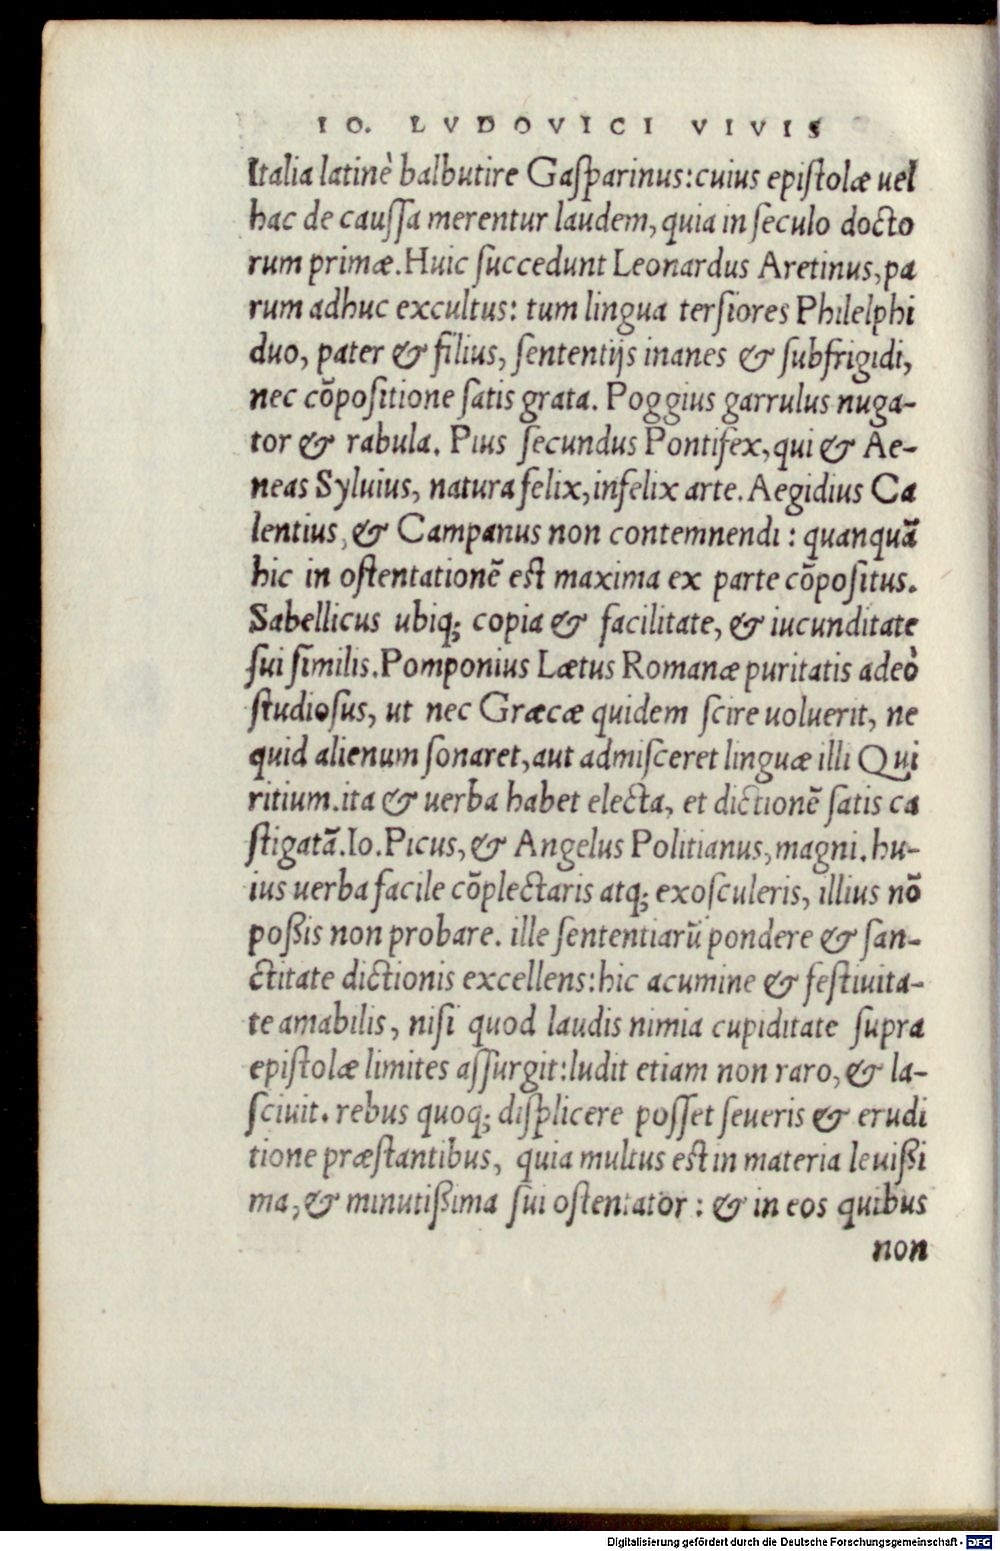 IO. LVDOVICI VIVIS
Italia latinè balbutire Gasparinus: cuius epistolæ uel
hac de caussa merentur laudem, quia in seculo docto
rum primæ. Huic succedunt Leonardus Aretinus, pa
rum adhuc excultus: tum lingua tersiores Philelphi
duo, pater & filius, sententijs inanes & subfrigidi,
nec cõpositione satis grata. Poggius garrulus nuga-
tor & rabula. Pius secundus Pontifex, qui & Ae-
neas Syluius, natura felix, infelix arte. Aegidius Ca
lentius, & Campanus non contemnendi: quanquã
hic in ostentationẽ est maxima ex parte cõpositus.
Sabellicus ubiq; copia & facilitate, & iucunditate
sui similis. Pomponius Lætus Romanæ puritatis adeò
studiosus, ut nec Græcæ quidem scire uoluerit, ne
quid alienum sonaret, aut admisceret linguæ illi Qui
ritium. ita & uerba habet electa, et dictionẽ satis ca
stigatã. Io. Picus, & Angelus Politianus, magni. hu-
ius uerba facile cõplectaris atq; exosculeris, illius nõ
poßis non probare. ille sententiarũ pondere & san-
ctitate dictionis excellens: hic acumine & festiuita-
te amabilis, nisi quod laudis nimia cupiditate supra
epistolæ limites assurgit: ludit etiam non raro, & la-
sciuit. rebus quoq; displicere posset seueris & erudi
tione præstantibus, quia multus est in materia leuißi
ma, & minutißima sui ostentator: & in eos quibus
non
Digitalisierung gefördert durch die Deutsche Forschungsgemeinschaft - DFG